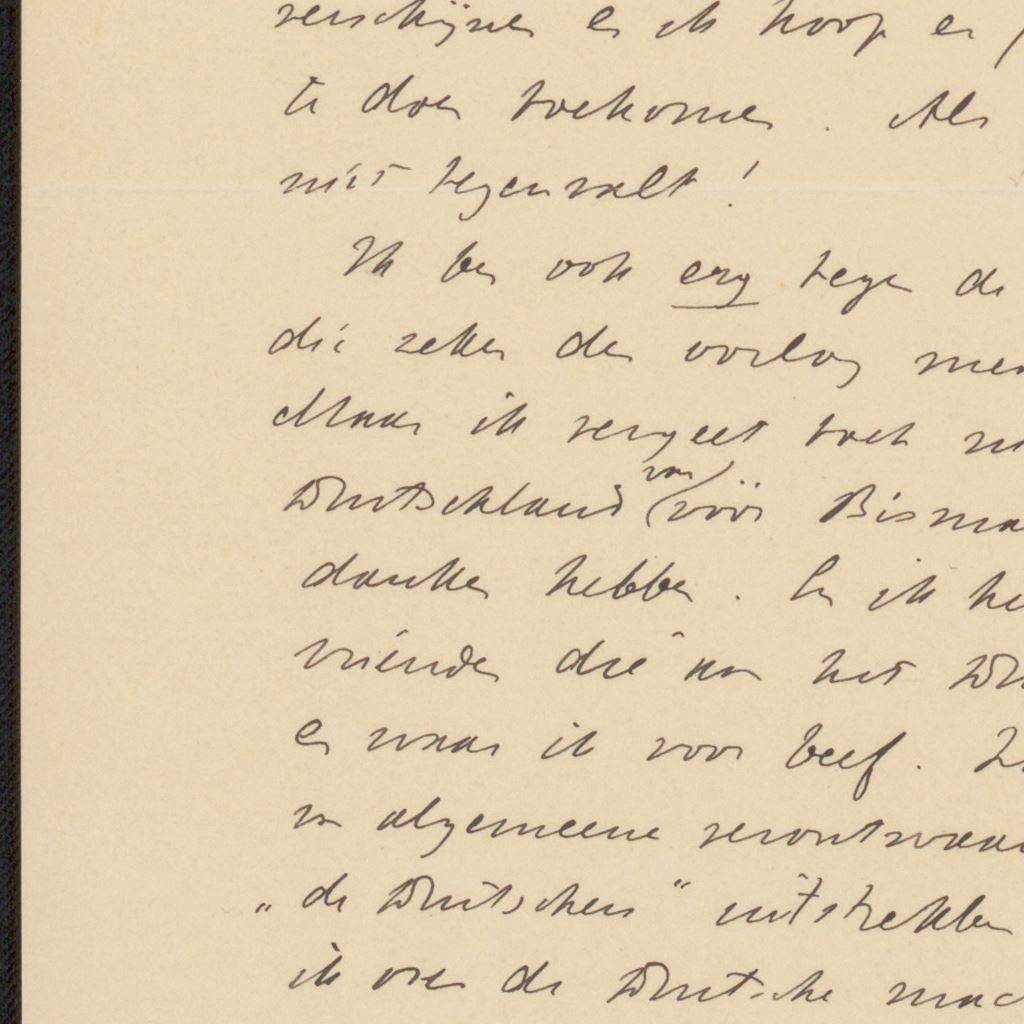 verschijnen en ik hoop er
te doen toekomen. Als
niet tegenvalt!
Ik ben ook erg tegen de
die zeker den oorlog
Maar ik vergeet toch
Duitschland van vóór Bisma
danken hebben. En ik he
vrienden die aan het
en waar ik voor beef.
algemeene verontwaar
„de Duitschers" uitstrekken
ik over de Duitsche mac